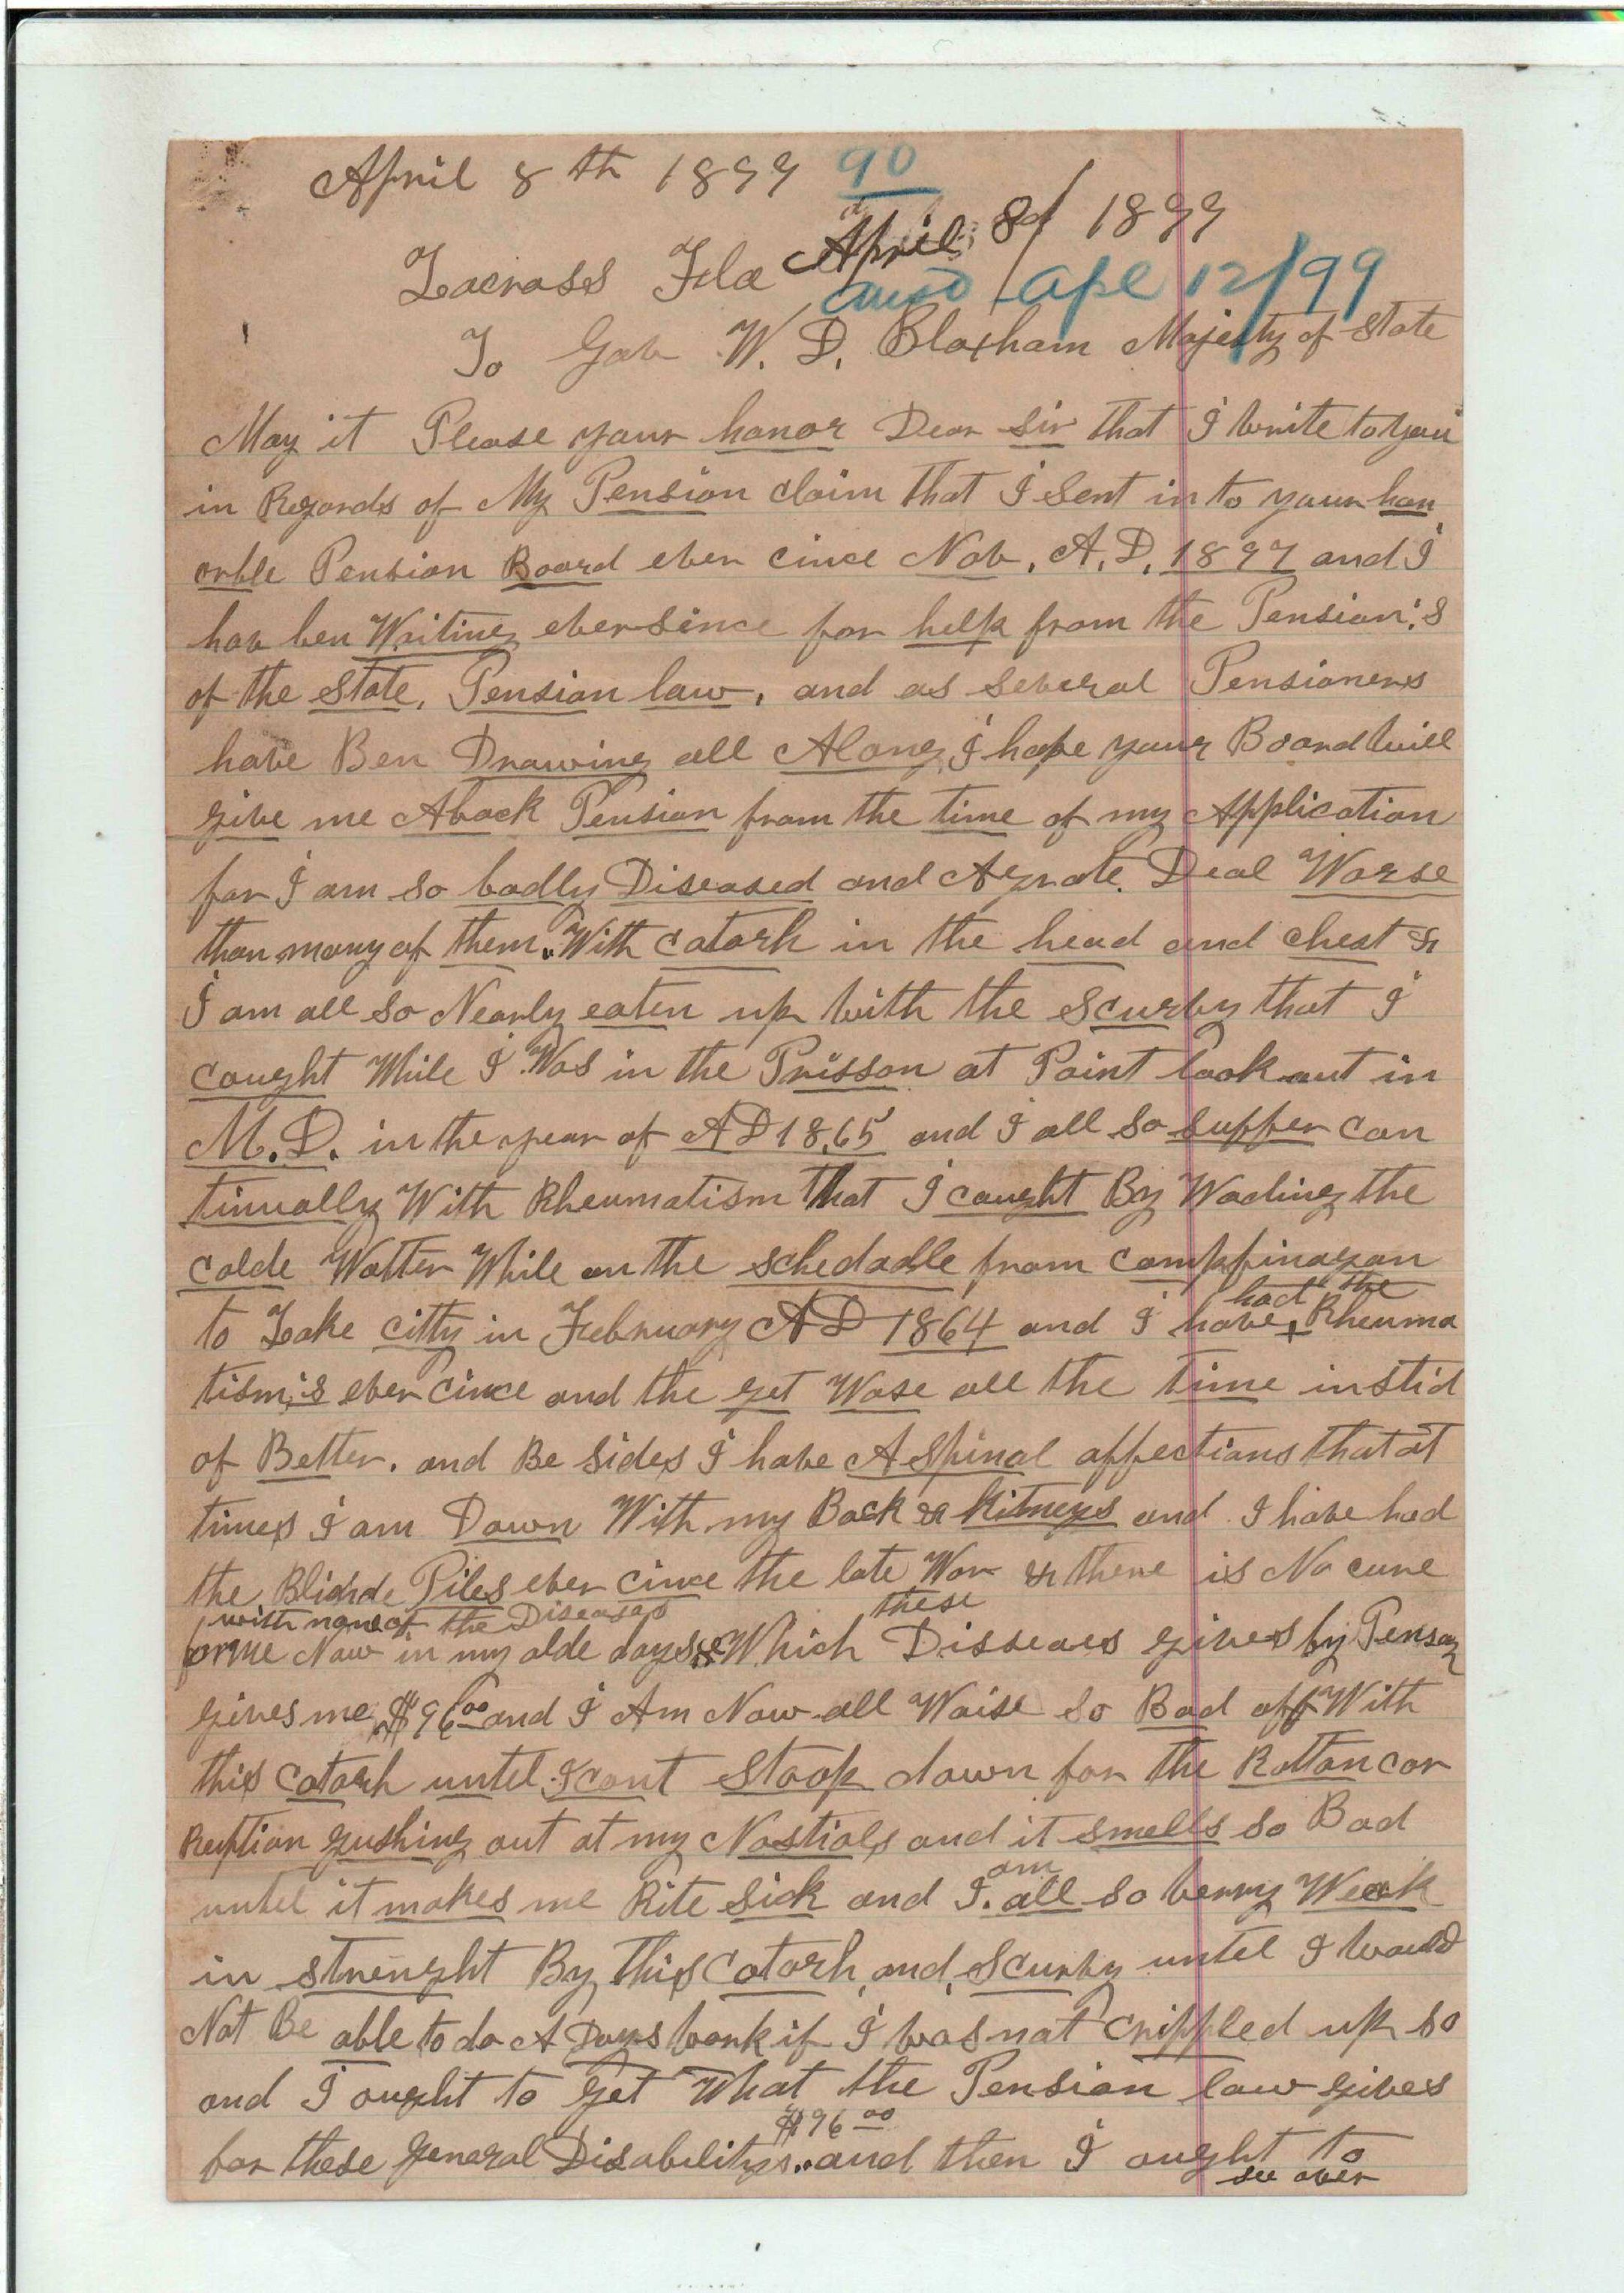 April 8th 1899 90
April 8d/ 1899
Lacross Fla
ansd Apl 12/99
To Gov W. D. Bloxham Majesty of State
May it Please your honor Dear sir that I Write to you
in Regards of My Pension claim that I Sent in to your hon
orble Pension Board ever cince Nov, A, D, 1897 and I
hav ben Waiting eversince for help from the Pension's
of the State, Pension law, and as several Pensioners
have Ben Drawing all Along, I hope your Board Will
give me Aback Pension from the time of my Application
for I am so badly Diseased and A grate Deal Worse
than many of them. With catarh in the head and chest &
I am all so Nearly eaten up With the scurvy that I
caught While I Was in the Prisson at Point look out in
M. D. in the year of AD 1865 and I all so suffer con
tinually With Rheumatism That I caught By Wading the
colde Watter While on the schedadle from campfinagan
to Lake citty in February AD 1864 and I have had the Rheuma
tism,s ever cince and the get Wose all the time instid
of Better. and Be sides I have A Spinal affections that at
times I am Down With my Back & Kitneys and I have had
the Blinde Piles ever cince the late War & there is No cure
with none of the Diseases these
forme Now in my olde days & Which Disseaes gives by Pensoy
gives me $96 00 and I Am Now all Waise so Bad off With
this catarh untel I cant stoop down for the Rottan cor
Reuption gushing out at my Nostials and it smells so Bad
untel it makes me Rite sick and I am all so verry Weak
in strenght By this catarh, and, scurvy untel I would
Not Be able to do A Days work if I was not crippled up so
and I ought to get What the Pension law gives
$96 00
for these general Disabilitys.. and then I ought to
see over